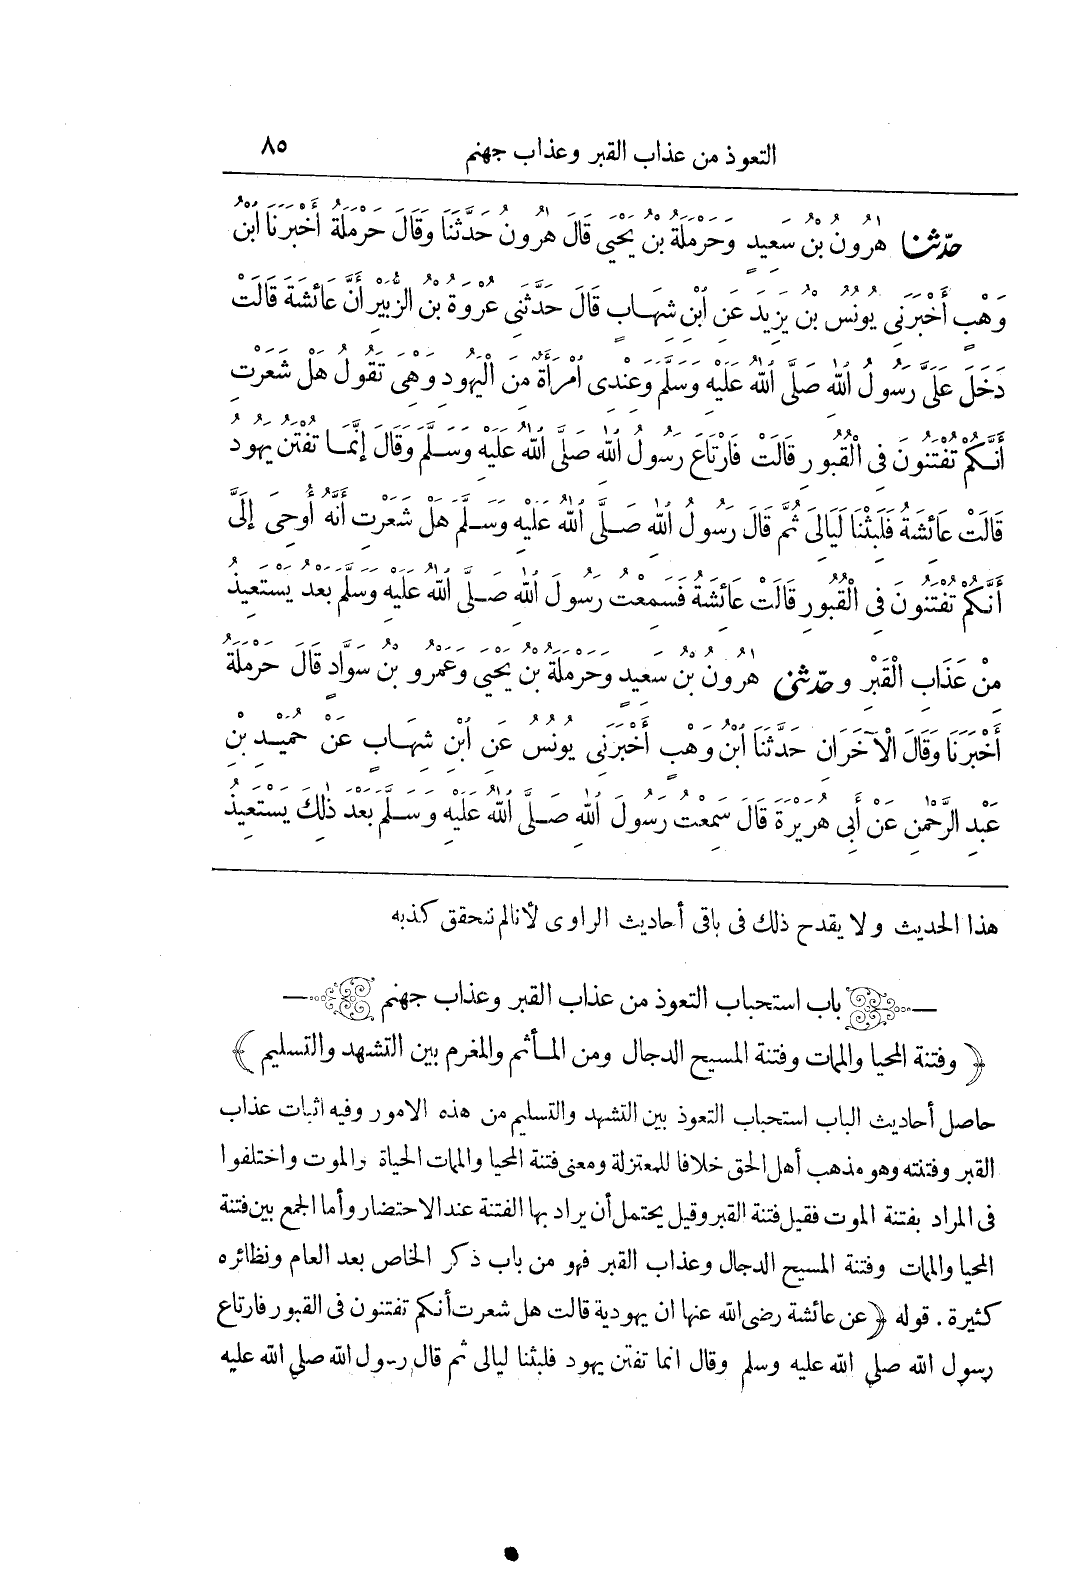 التعوذ من عذاب القبر وعذاب جهنم ٨٥
حدّثنا هٰرُونُ بْنُ سَعِيدٍ وَحَرْمَلَةُ بْنُ يَحْيَى قَالَ هٰرُونُ حَدَّثَنَا وَقَالَ حَرْمَلَةُ أَخْبَرَنَا ابْنُ
وَهْبٍ أَخْبَرَنِى يُونُسُ بْنُ يَزِيدَ عَنِ ابْنِ شِهَابٍ قَالَ حَدَّثَنِى عُرْوَةُ بْنُ الزُّبَيْرِ أَنَّ عَائِشَةَ قَالَتْ
دَخَلَ عَلَىَّ رَسُولُ اللهِ صَلَّى اللهُ عَلَيْهِ وَسَلَّمَ وَعِنْدِى امْرَأَةٌ مِنَ الْيَهُودِ وَهْىَ تَقُولُ هَلْ شَعَرْتِ
أَنَّكُمْ تُفْتَنُونَ فِى الْقُبُورِ قَالَتْ فَارْتَاعَ رَسُولُ اللهِ صَلَّى اللهُ عَلَيْهِ وَسَلَّمَ وَقَالَ إِنَّمَا تُفْتَنُ يَهُودُ
قَالَتْ عَائِشَةُ فَلَبِثْنَا لَيَالِىَ ثُمَّ قَالَ رَسُولُ اللهِ صَلَّى اللهُ عَلَيْهِ وَسَلَّمَ هَلْ شَعَرْتِ أَنَّهُ أُوحِىَ إِلَىَّ
أَنَّكُمْ تُفْتَنُونَ فِى الْقُبُورِ قَالَتْ عَائِشَةُ فَسَمِعْتُ رَسُولَ اللهِ صَلَّى اللهُ عَلَيْهِ وَسَلَّمَ بَعْدُ يَسْتَعِيذُ
مِنْ عَذَابِ الْقَبْرِ وحدّثنى هٰرُونُ بْنُ سَعِيدٍ وَحَرْمَلَةُ بْنُ يَحْيَى وَعَمْرُو بْنُ سَوَّادٍ قَالَ حَرْمَلَةُ
أَخْبَرَنَا وَقَالَ الْآخَرَانِ حَدَّثَنَا ابْنُ وَهْبٍ أَخْبَرَنِى يُونُسُ عَنِ ابْنِ شِهَابٍ عَنْ حُمَيْدِ بْنِ
عَبْدِ الرَّحْمٰنِ عَنْ أَبِى هُرَيْرَةَ قَالَ سَمِعْتُ رَسُولَ اللهِ صَلَّى اللهُ عَلَيْهِ وَسَلَّمَ بَعْدَ ذٰلِكَ يَسْتَعِيذُ
هذا الحديث ولا يقدح ذلك فى باقى أحاديث الراوى لأنا لم نتحقق كذبه
باب استحباب التعوذ من عذاب القبر وعذاب جهنم
﴿ وفتنة المحيا والممات وفتنة المسيح الدجال ومن المأثم والمغرم بين التشهد والتسليم ﴾
حاصل أحاديث الباب استحباب التعوذ بين التشهد والتسليم من هذه الامور وفيه اثبات عذاب
القبر وفتنته وهو مذهب أهل الحق خلافا للمعتزلة ومعنى فتنة المحيا والممات الحياة والموت واختلفوا
فى المراد بفتنة الموت فقيل فتنة القبر وقيل يحتمل أن يراد بها الفتنة عند الاحتضار وأما الجمع بين فتنة
المحيا والممات وفتنة المسيح الدجال وعذاب القبر فهو من باب ذكر الخاص بعد العام ونظائره
كثيرة . قوله ﴿ عن عائشة رضى الله عنها ان يهودية قالت هل شعرت أنكم تفتنون فى القبور فارتاع
رسول الله صلى الله عليه وسلم وقال انما تفتن يهود فلبثنا ليالى ثم قال رسول الله صلى الله عليه